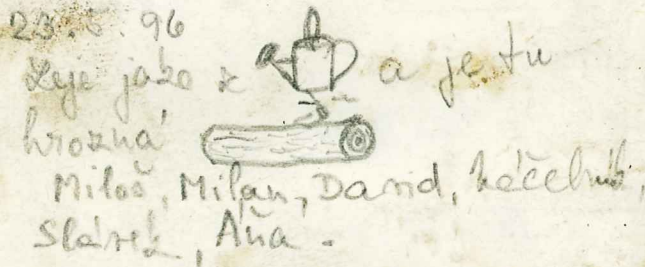 23.5.96
Leje jako z a je tu
hrozná
Miloš, Milan, David, Káčehub,
Slávek, Áňa.